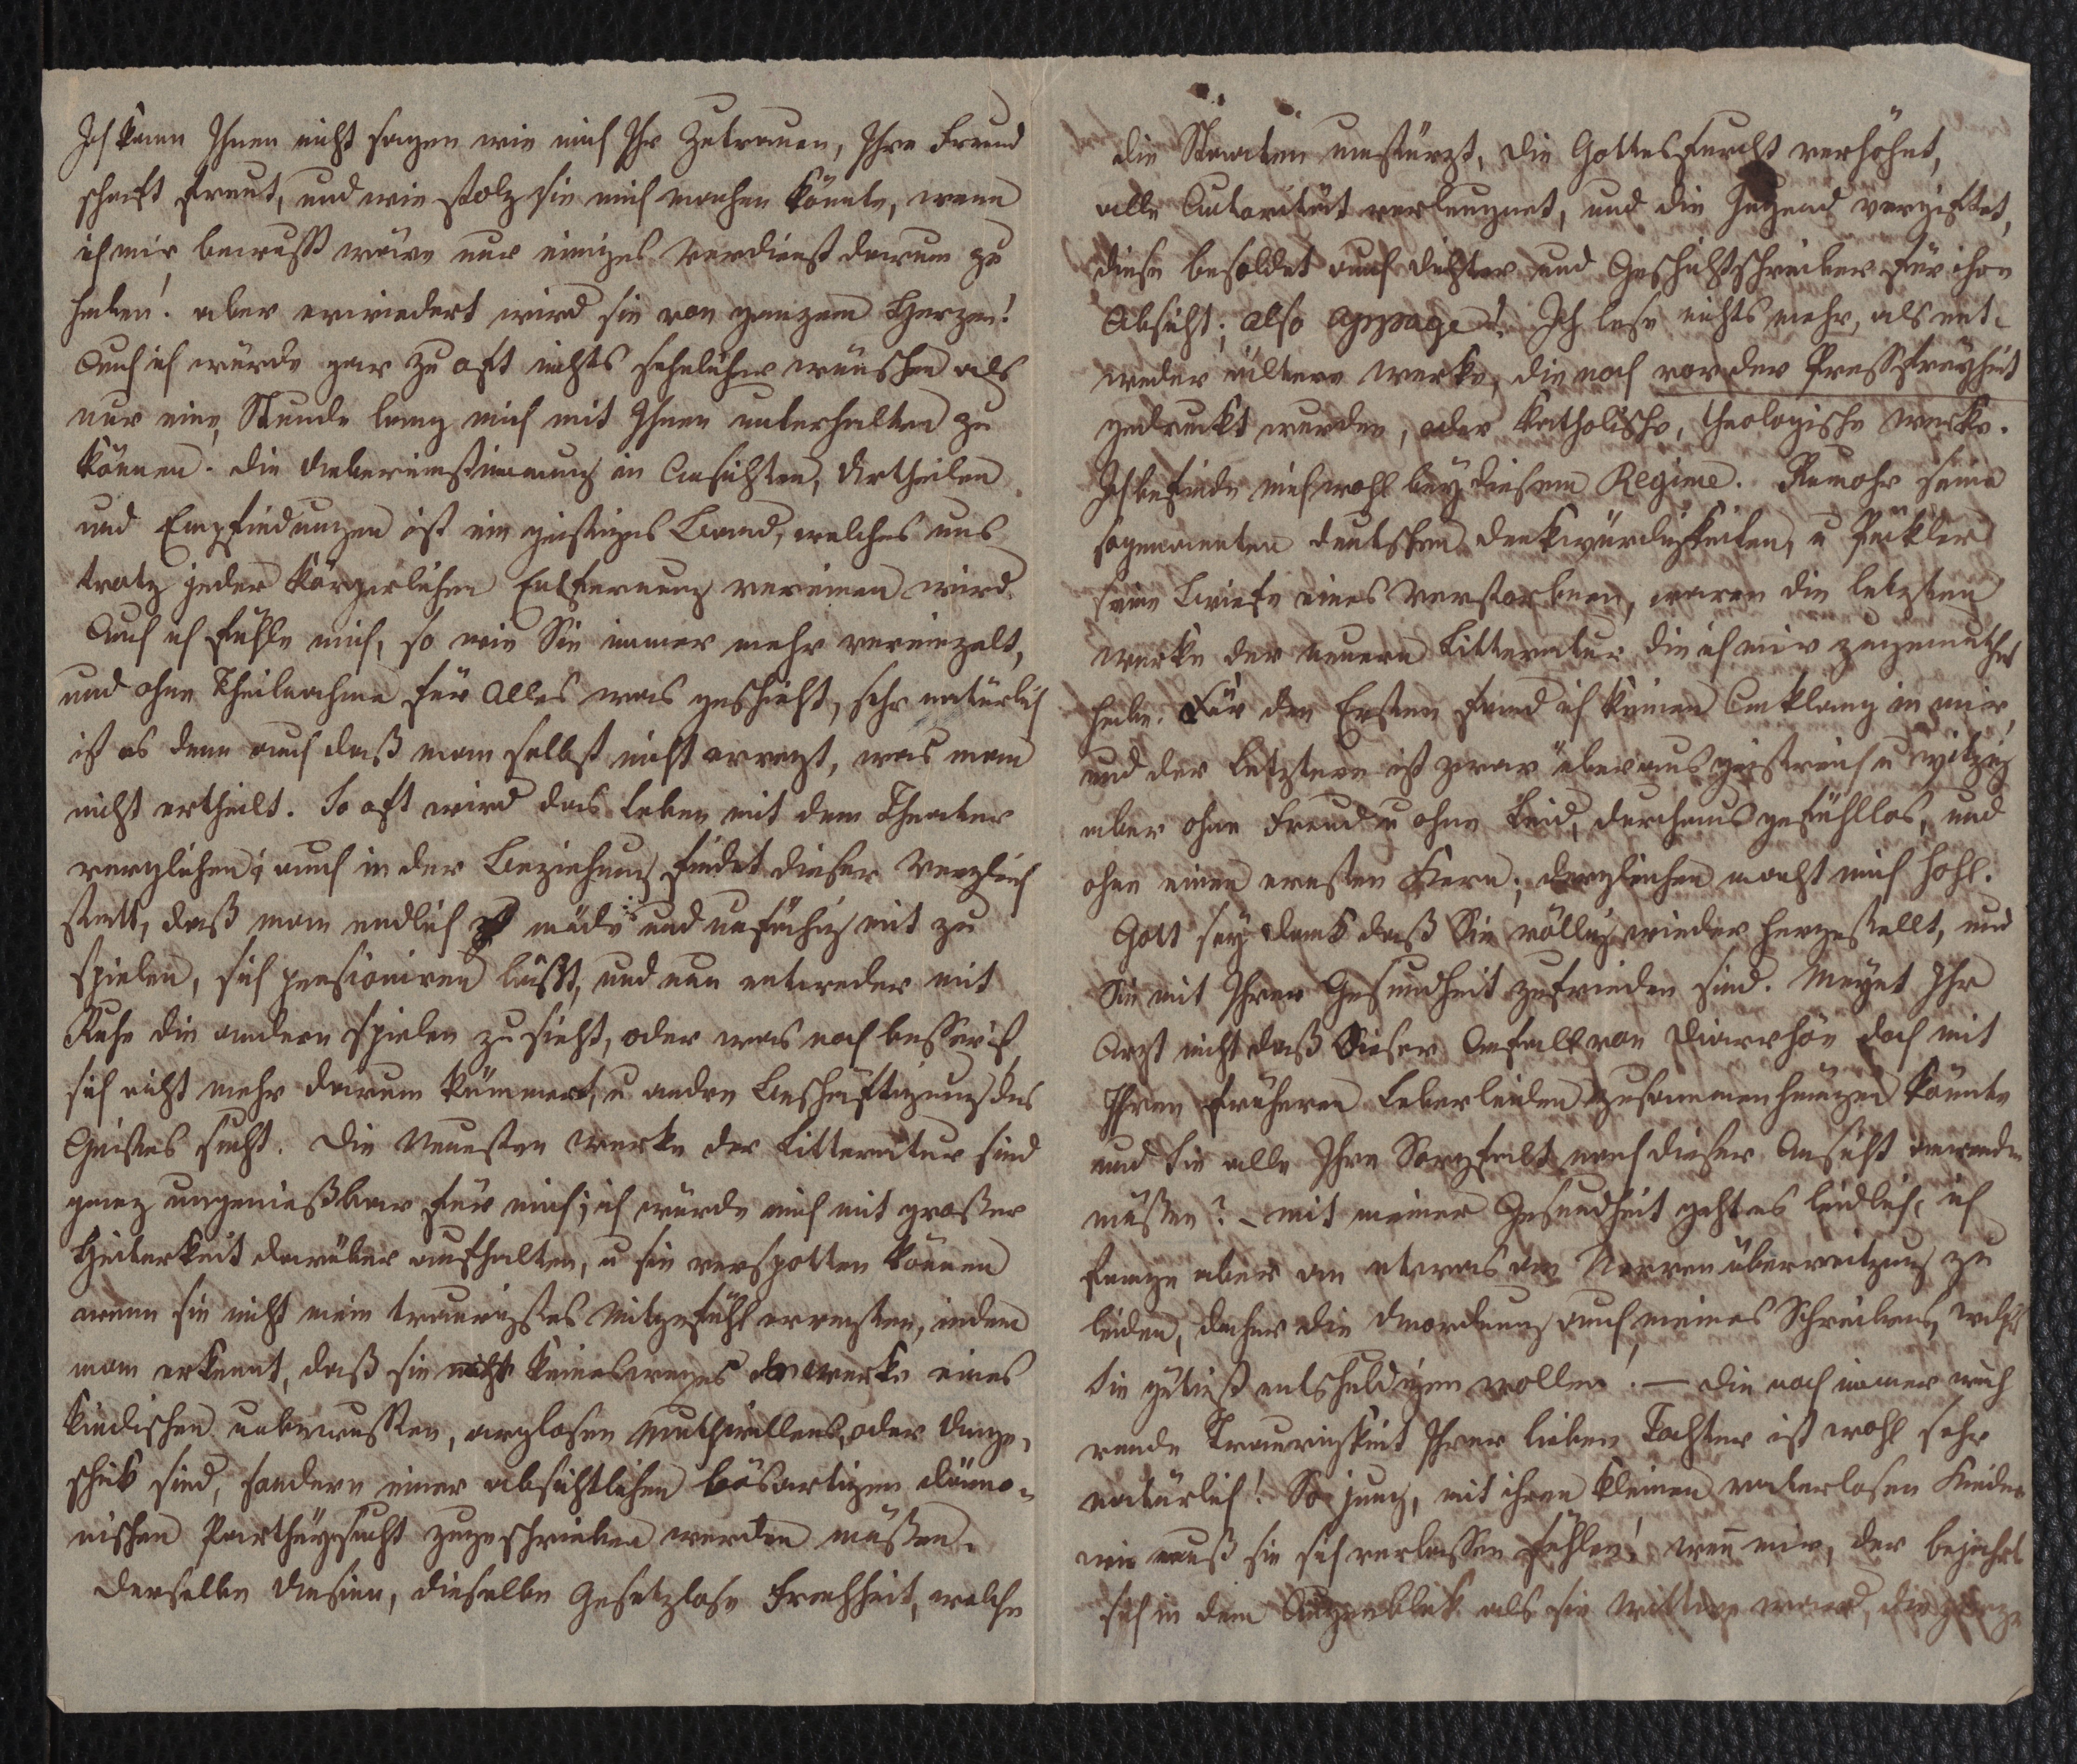 Ich kann Ihnen nicht sagen wie mich Ihr Zutrauen, Ihre Freund
schaft freut, und wie stolz sie mich machen könnte, wenn
ich mir bewusst wäre nur einiges Verdienst darum zu
haben! aber erwiedert wird sie von ganzem Herzen!
Auch ich würde gar zu oft nichts sehnlicher wünschen als
nur eine Stunde lang mich mit Ihnen unterhalten zu
können. Die Uebereinstimmung in Ansichten, Urtheilen
und Empfindungen ist ein geistiges Band, welches uns
trotz jeder körperlichen Entfernung vereinen wird.
Auch ich fühle mich, so wie Sie immer mehr vereinzelt,
und ohne Theilnahme für Alles was geschieht, sehr natürlich
ist es denn auch daß man selbst nicht erregt, was man
nicht ertheilt. So oft wird das Leben mit dem Theater
verglichen; auch in der Beziehung findet dieser Vergleich
statt, daß man endlich müde und unfähig mit zu
spielen, sich pensioniren läßt, und nun entweder mit
Ruhe die andern spielen zu sieht, oder was noch besser ist
sich nicht mehr darum kümmert, u andre Beschäftigung des
Geistes sucht. Die Neuesten Werke der Litteratur sind
ganz ungenießbar für mich; ich würde mich mit großer
Heiterkeit darüber aufhalten, u sie verspotten können
wenn sie nicht mein traurigstes Mitgefühl erregten, indem
man erkennt, daß sie nicht keinesweges Werke eines
kindischen unbewussten, arglosen Muthwillens, oder Unge-
schik sind, sondern einer absichtlichen bösartigen dämo-
nischen Partheysucht zugeschrieben werden müßen.
Derselbe Unsinn, dieselbe Gesetzlose Frechheit, welche
die Staaten umstürzt, die Gottesfurcht verhöhnt,
alle Autorität verleugnet, und die Jugend vergiftet,
diese besoldet auch Dichter und Geschichtschreiber für ihre
Absicht; also appage! Ich lese nichts mehr, als ent-
weder ältere Werke, die noch vor der Pressfreyheit
gedruckt wurden, oder katholische, theologische Werke.
Ich befinde mich wohl bey diesem Regime. Rumohr seine
sogenannten deutschen Denkwürdigkeiten, u Pückler
seine Briefe eines Verstorbnen, waren die letzten
Werke der neuern Litteratur die ich mir zugemuthet
habe. Für den Ersten fand ich keinen Anklang in mir,
und der Letztere ist zwar überaus geistreich u witzig
aber ohne Freud u ohne Leid, durchaus gefühllos, und
ohne einen ernsten Kern; dergleichen macht mich hohl.
Gott sey dank daß Sie völlig wieder hergestellt, und
Sie mit Ihrer Gesundheit zufrieden sind. Meynt Ihr
Arzt nicht daß dieser Anfall von Diarrhöe doch mit
Ihren früheren Leberleiden zusammenhängen könnte
und Sie alle Ihre Sorgfalt nach dieser Ansicht anwenden
müßen? – mit meiner Gesundheit geht es leidlich, ich
fange aber an etwas an Nervenüberreitzung zu
leiden, daher die Unordnung auch meines Schreibens, welches
Sie gütigst entschuldigen wollen! — Die noch immer wäh
rende Traurigkeit Ihrer lieben Tochter ist wohl sehr
natürlich! So jung, mit ihren kleinen vaterlosen Kinder
wie muß sie sich verlassen fühlen! wenn mir, der bejahrten
sich in dem Augenblick als sie Wittwe ward, die ganze